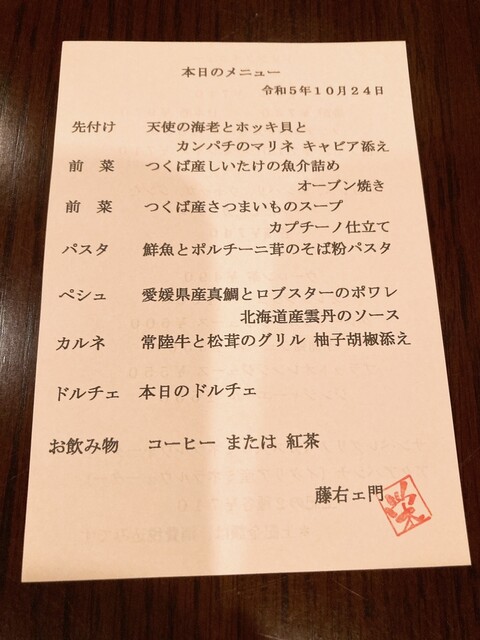 本日のメニュー
令和5年10月24日
先付け 天使の海老とホッキ貝と
カンパチのマリネ キャビア添え
前 菜 つくば産しいたけの魚介詰め
オーブン焼き
前 菜 つくば産さつまいものスープ
カプチーノ仕立て
パスタ 鮮魚とポルチーニ茸のそば粉パスタ
ペシュ 愛媛県産真鯛とロブスターのポワレ
北海道産雲丹のソース
カルネ 常陸牛と松茸のグリル 柚子胡椒添え
ドルチェ 本日のドルチェ
お飲み物 コーヒー または 紅茶
藤右ェ門